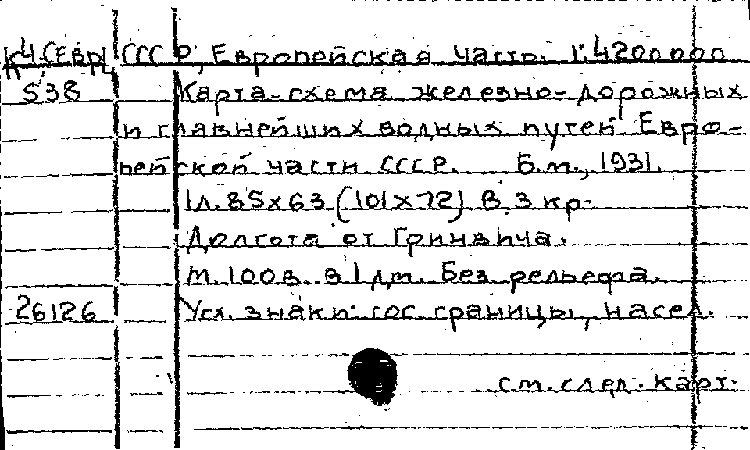 К4.(Евр) СССР, Европейская часть. 1:4200000
S38 Карта-схема железно-дорожных
и главнейших водных путей Евро-
пейской части СССР. Б.м., 1931.
1л. 85х63 (101х72) в 3 кр.
Долгота от Гринвича.
М. 100в. в 1 дм. Без рельефа.
26126 Усл. знаки: гос. границы, насел.
см. след. карт.